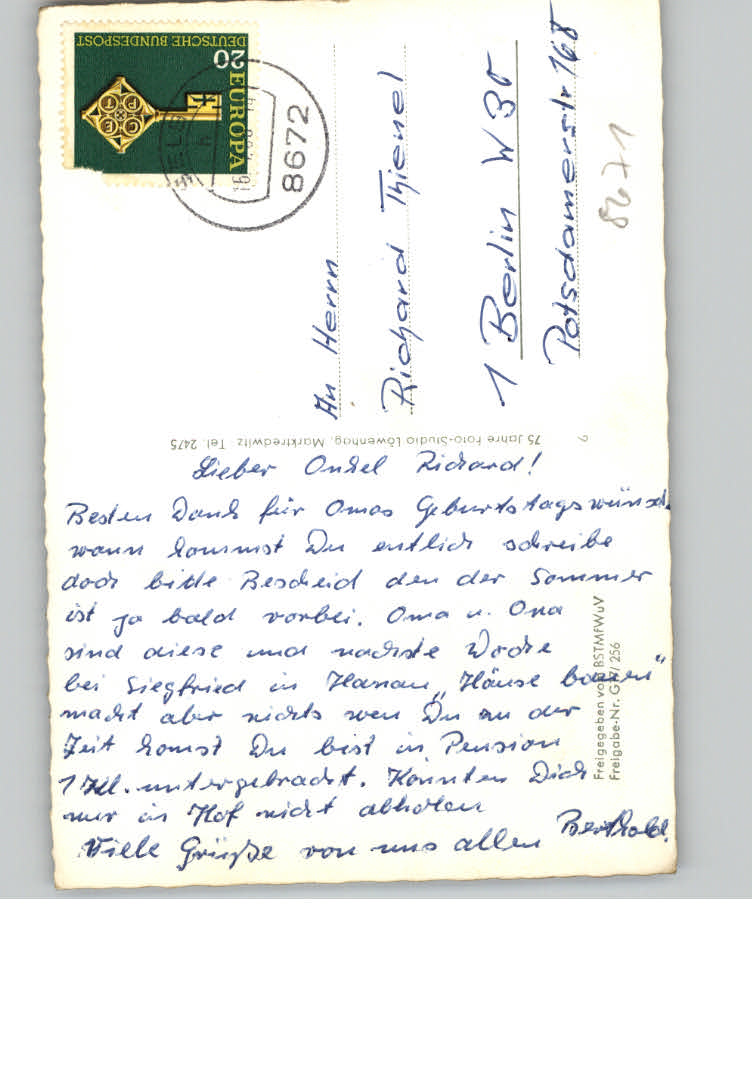 DEUTSCHE BUNDESPOST
20
EUROPA
CEPT
8672
An Herrn
Richard Thienel
1 Berlin W 30
Potsdamerstr 168
8671
75 Jahre Foto-Studio Löwenhag, Marktredwitz, Tel. 2475
Lieber Onkel Richard!
Besten Dank für Omas Geburtstagswünsch.
wann kommst Du entlich schreibe
doch bitte Bescheid den der Sommer
ist ja bald vorbei. Oma u. Opa
sind diese und nächste Woche
bei Siegfried in Hanau „Häuse bauen“
macht aber nichts wen Du zu der
Zeit komst Du bist in Pension
1 Kl. untergebracht. Könnten Dich
nur in Hof nicht abholen
Viele Grüße von uns allen Berthold.
Freigegeben von BSTMfWuV
Freigabe-Nr. / 256